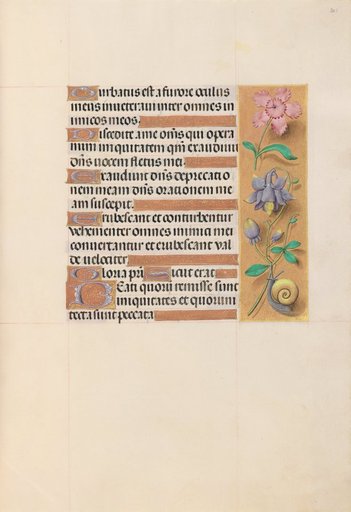 Turbatus est a furore oculus
meus inveteravi inter omnes in
imicos meos.
Discedite a me oms̄ qui opera
mini iniquitatem qm̄ exaudivit
dn̄s vocem fletus mei.
Exaudivit dn̄s deprecatio
nem meam dn̄s orationem me
am suscepit.
Erubescant et conturbentur
vehementer omnes inimici mei
convertantur et erubescant val
de velociter.
Gloria pr̄i Sicut erat
Beati quorū remisse sunt
iniquitates et quorum
tecta sunt peccata